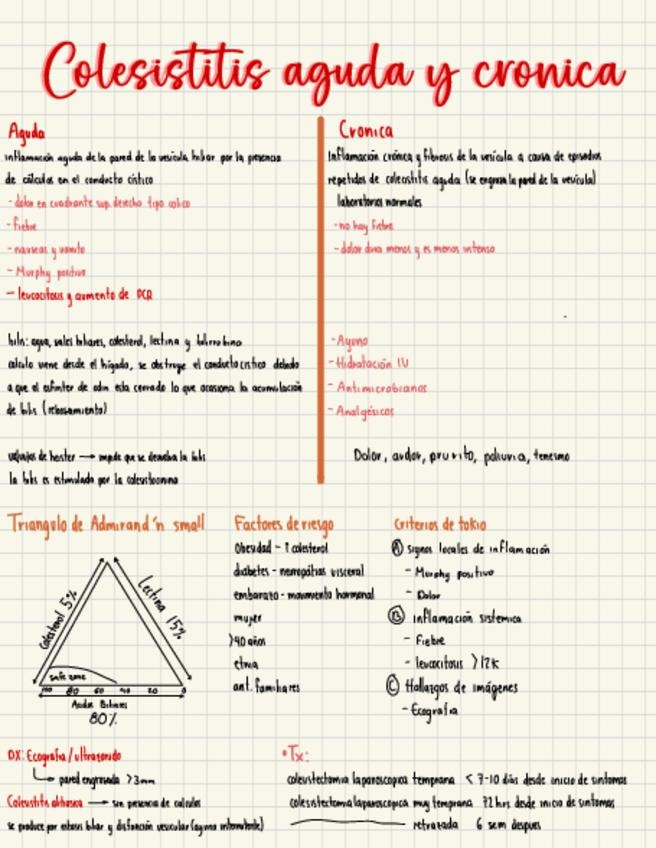 Colesistitis aguda y cronica
Aguda
inflamación aguda de la pared de la vesicula biliar por la presencia
de cálculos en el conducto cístico
- dolor en cuadrante sup. derecho tipo colico
- fiebre
- nauseas y vomito
- Murphy positivo
- leucocitosis y aumento de PCR
bilis: agua, sales biliares, colesterol, lectina y bilirrubina
calculo viene desde el higado, se obstruye el conducto cistico debido
a que el esfinter de oddi esta cerrado lo que ocasiona la acumulación
de bilis (rebosamiento)
valvulas de heister → impide que se devuelva la bilis
la bilis es estimulada por la colecistoquinina
Cronica
Inflamación crónica y fibrosis de la vesícula a causa de episodios
repetidos de colecistitis aguda (se engrosa la pared de la vesícula)
laboratorios normales
- no hay fiebre
- dolor dura menos y es menos intenso
- Ayuno
- Hidratación IV
- Antimicrobianos
- Analgésicos
Dolor, ardor, prurito, poliuria, tenesmo
Triangulo de Admirand'n small
Colesterol 5%
Lectina 15%
safe zone
100 80 60 40 20 0
Acidos Biliares
80%
Factores de riesgo
Obesidad - ↑ colesterol
diabetes - neuropatias visceral
embarazo - movimento hormonal
mujer
>40 años
etnia
ant. familiares
Criterios de tokio
A signos locales de inflamación
- Murphy positivo
- Dolor
B inflamación sistemica
- Fiebre
- leucocitosis >12k
C Hallazgos de imágenes
- Ecografia
DX: Ecografia/ultrasonido
pared engrosada >3mm
Colecistitis alitiasica → sin presencia de calculos
se produce por estasis biliar y disfunción vesicular (ayuno intermitente)
*Tx:
colecistectomia laparoscopica temprana < 7-10 dias desde inicio de sintomas
colesistectomia laparoscopica muy temprana 72 hrs desde inicio de sintomas
retrazada 6 sem despues